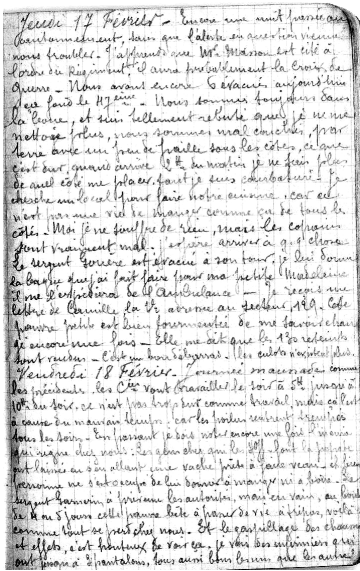 Jeudi 17 Février - Encore une nuit passée au
cantonnement, sans que l'alerte en question vienne
nous troubler. J'apprends que Mr Masson est cité à
l'ordre du Régiment, il aura probablement la Croix de
guerre - Nous avons encore 6 évacués aujourd'hui
Nous sommes toujours dans
la boue, et suis tellement rebuté que je ne me
nettoie plus, nous sommes mal couchés, par
terre avec un peu de paille sous les côtes, ce que
c'est dur, quand arrive 2h du matin je ne sais plus
de quel côté me placer, tant je suis courbaturé - Je
cherche un local pour faire notre cuisine, car ce
n'est pas une vie de manger comme ça de tous les
côtés - Moi je ne souffre de rien, mais les copains
sont vraiment mal - j'espère arriver à qq chose
le sergent est évacué à son tour, je lui donne
la bague que j'ai fait faire pour ma petite Madeleine
il me l'expédiera de l'Ambulance - Je reçois une
lettre de Camille la 1re adressée au secteur 129. Cette
pauvre petite est bien tourmentée de me savoir dans
encore une fois - Elle me dit que les
sont rendus - C'est un bon débarras. les culots n'existent plus.
Vendredi 18 Février. Journée maussade comme
les précédentes. les Cies vont travailler le soir à 5h jusqu'à
10h du soir. ce n'est pas trop dur comme travail, mais ça l'est
à cause du mauvais temps, car les poilus rentrent trempés
tous les soirs - En passant je dois noter encore une fois l'
qui règne chez nous.
ont laissé en s'en allant une vache prête à faire veau, et
personne ne s'est occupé de lui donner à manger ni à boire. Le
sergent a prévenu les autorités, mais en vain, au bout
de 4 ou 5 jours cette pauvre bête à
comme tout se perd chez nous. Et le gaspillage des chaussures
et effets, c'est honteux de voir ça, je vois des infirmiers qui
ont jusqu'à 3 pantalons, tous aussi bons les uns que les autres